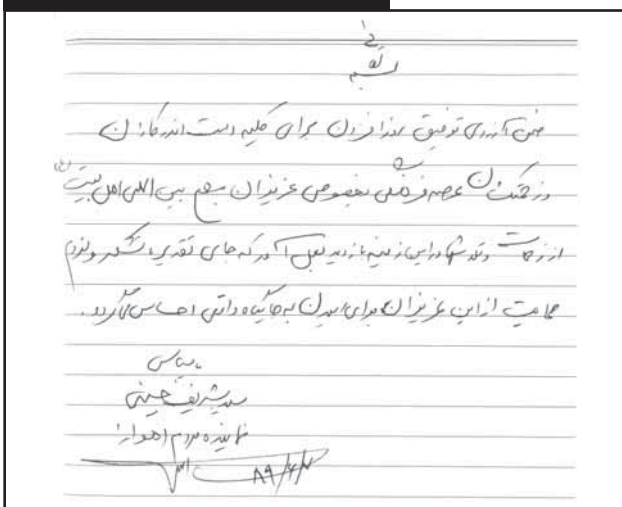 بسمه تعالی
ضمن آرزوی توفیق روزافزون برای کلیه دست اندرکاران
و زحمتکشان عرصه فرهنگی بخصوص عزیزان مجمع بین المللی اهل بیت
از زحمات و تلاشها در این زمینه بازدید بعمل آمد که جای تقدیر و تشکر و لزوم
حمایت از این عزیزان برای رسیدن به جایگاه واقعی احساس میگردد.
با سپاس
سید شریف حسینی
نماینده مردم اهواز